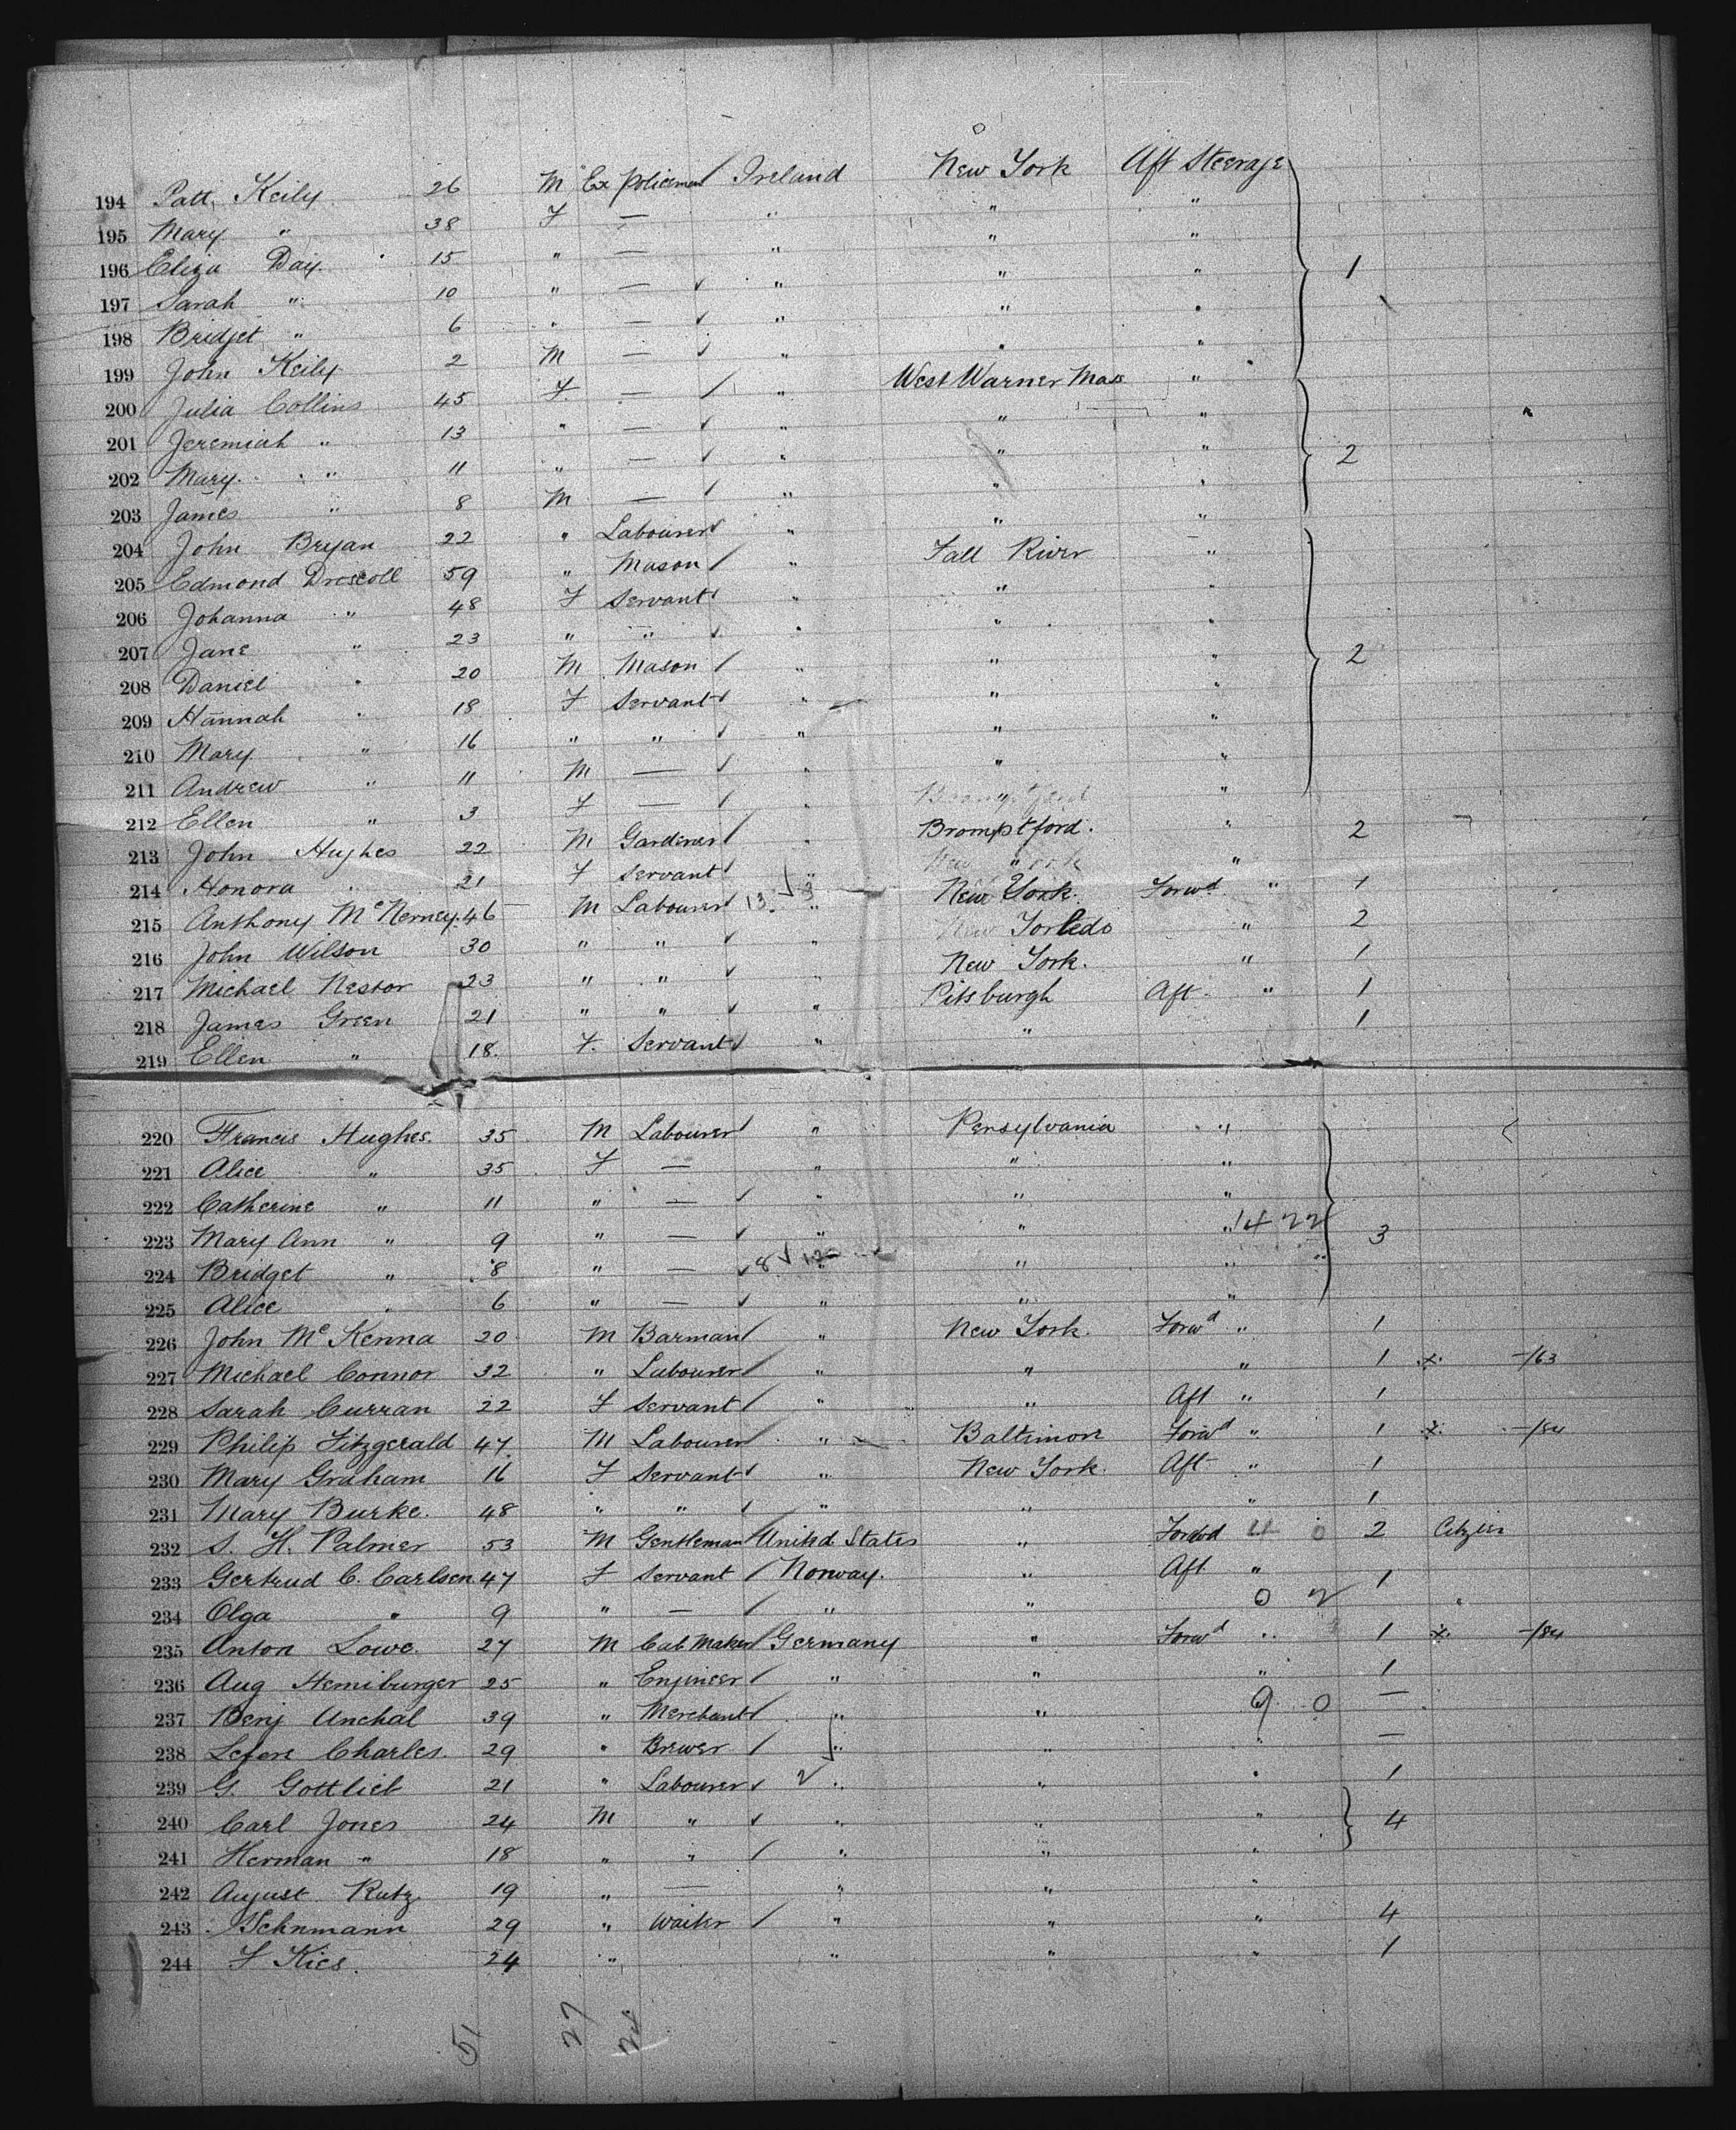 194 Patt Keily 26 M Ex Policeman / Ireland New York Aft Steerage
195 Mary " 38 F — " " "
196 Eliza Day 15 " — " " " 1
197 Sarah " 10 " — ✓ " " "
198 Bridget " 6 " — ✓ " " "
199 John Keily 2 M — ✓ " " "
200 Julia Collins 45 F. — / " West Warner Mass "
201 Jeremiah " 13 " — ✓ " " "
202 Mary " 11 " — ✓ " " " 2
203 James " 8 M — / " " "
204 John Bryan 22 " Labourer ✓ " " "
205 Edmond Driscoll 59 " Mason / " Fall River "
206 Johanna " 48 F Servant " " "
207 Jane " 23 " " ✓ " " "
208 Daniel " 20 M Mason / " " " 2
209 Hannah " 18 F Servant " " "
210 Mary " 16 " " ✓ " " "
211 Andrew " 11 M — ✓ " " "
212 Ellen " 3 F — / " " "
213 John Hughes 22 M Gardiner / " Bromptford. " 2
214 Honora " 21 F Servant " " "
215 Anthony McNerney 46 M Labourer 13 3 " New York. Forwd " 1
216 John Wilson 30 " " ✓ " Torledo " 2
217 Michael Nestor 23 " " ✓ " New York. " 1
218 James Green 21 " " ✓ " Pitsburgh Aft " 1
219 Ellen " 18. F. Servant ✓ " " 1
220 Francis Hughes 35 M Labourer " Pensylvania "
221 Alice " 35 F — " " "
222 Catherine " 11 " — ✓ " " "
223 Mary Ann " 9 " — ✓ " " " 14 22 3
224 Bridget " 8 " — ✓ 8 " " "
225 Alice " 6 " — ✓ " " "
226 John McKenna 20 M Barman / " New York. Forwd " 1
227 Michael Connor 32 " Labourer / " " " 1 x. -/63
228 Sarah Curran 22 F Servant / " " Aft " 1
229 Philip Fitzgerald 47 M Labourer " Baltimore Forwd " 1 x. -/84
230 Mary Graham 16 F Servant ✓ " New York. Aft " 1
231 Mary Burke. 48 " " ✓ " " " 1
232 S. H. Palmer 53 M Gentleman / United States " Forwd 4 0 2 Citizen
233 Gertrud C. Carlsen 47 F Servant / Norway. " Aft " 1
234 Olga " 9 " — / " " 0 2
235 Anton Lowe. 27 M Cab Maker / Germany " Forwd " 1 x. -/84
236 Aug Hemiburger 25 " Engineer / " " " 1
237 Benj Unchal 39 " Merchant / " " 9 0 —
238 Lefere Charles. 29 " Brewer / " " " —
239 G. Gottlieb 21 " Labourer ✓ 2 " " " 1
240 Carl Jones 24 M " ✓ " " " 4
241 Herman " 18 " " / " " "
242 August Rutz 19 " — " " "
243 29 " Waiter / " " " 4
244 F Kies. 24 " " " " 1
51 27 24